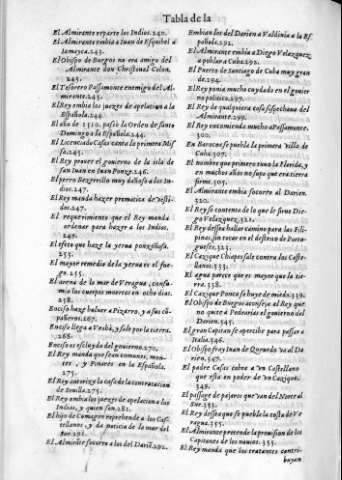 Tabla de la
El Almirante reparte los Indios. 240.
El Almirante embia a Iuan de Esquibel a
Iamayca. 243.
El Obispo de Burgos no era amigo del
Almirante don Christoual Colon.
243.
El Tesorero Passamonte enemigo del Al-
mirante. 243.
El Rey embia los juezes de apelacion a la
Española. 244.
El año de 1510. passò la Orden de santo
Domingo a la Española. 244.
El Licenciado Casas canta la primera Mis
sa. 245.
El Rey prouee el gouierno de la isla de
san Iuan en Iuan Ponze. 246.
El perro Bezerrillo muy dañoso a los In-
dios. 247.
El Rey manda hazer prematica de Vesti-
dos. 247.
El requerimiento que el Rey manda
ordenar para hazer a los Indios.
248.
El efeto que haze la yerua ponzoñosa.
255.
El mayor remedio de la yerua es el fue-
go. 255.
El arena de la mar de Veragua, consu-
mia los cuerpos muertos en ocho dias.
258.
Enciso haze boluer a Pizarro, y a sus cō-
pañeros. 267.
Enciso llega a Vraba, y sale por la tierra.
268.
Enciso es escluydo del gouierno. 270.
El Rey manda que se an comunes, mon-
tes, y Pinares en la Española.
275.
El Rey autoriza la casa de la contratacion
de Seuilla. 275.
El Rey embia los juezes de apelacion a las
Indias, y quien son. 281.
El hijo de Comagre reprehende a los Cas-
tellanos, y da noticia de la mar del
Sur. 291.
El Almirante socorre a los del Dariē. 292.
Embian los del Darien a Valdiuia a la Es
pañola. 292.
El Almirante embia a Diego Velazquez,
a poblar a Cuba. 292.
El Puerto de Santiago de Cuba muy gran
de. 294.
El Rey ponia mucho cuydado en el gouier
no politico. 297.
El Rey de qualquiera cosa sospechaua del
Almirante. 299.
El Rey encomienda mucho a Passamonte.
300.
En Baracoa se puebla la primera Villa de
Cuba. 307.
El nombre que primero tuuo la Florida, y
en muchos años no supe que era tierra
firme. 303.
El Almirante embia socorro al Darien.
320.
El Rey se contenta de lo que le sirue Die-
go Velazquez. 321.
El Rey dessea hallar camino para las Fili-
pinas, sin tocar en el destreto de Portu-
gueses. 323.
El Cazique Chiapes sale contra los Caste-
llanos. 333.
El agua parece que es mayor que la tie-
rra. 338.
El Cazique Ponce se huye de miedo. 338.
El Obispo de Burgos aconseja al Rey que
no quite a Pedrarias el gouierno del
Darien. 345.
El gran Capitan se apercibe para passar a
Italia. 346.
El Obispo fray Iuan de Queuedo va al Da
rien. 347.
El padre Casas cobra a vn Castellano
que està en poder de vn Cazique.
348.
El passage de pajaros que van del Norte al
Sur. 353.
El Rey dessea que se pueble la costa de Ve
ragua. 355.
El Almirante pretende la prouision de los
Capitanes de los nauios. 355.
El Rey manda que los tratantes contri-
buyan